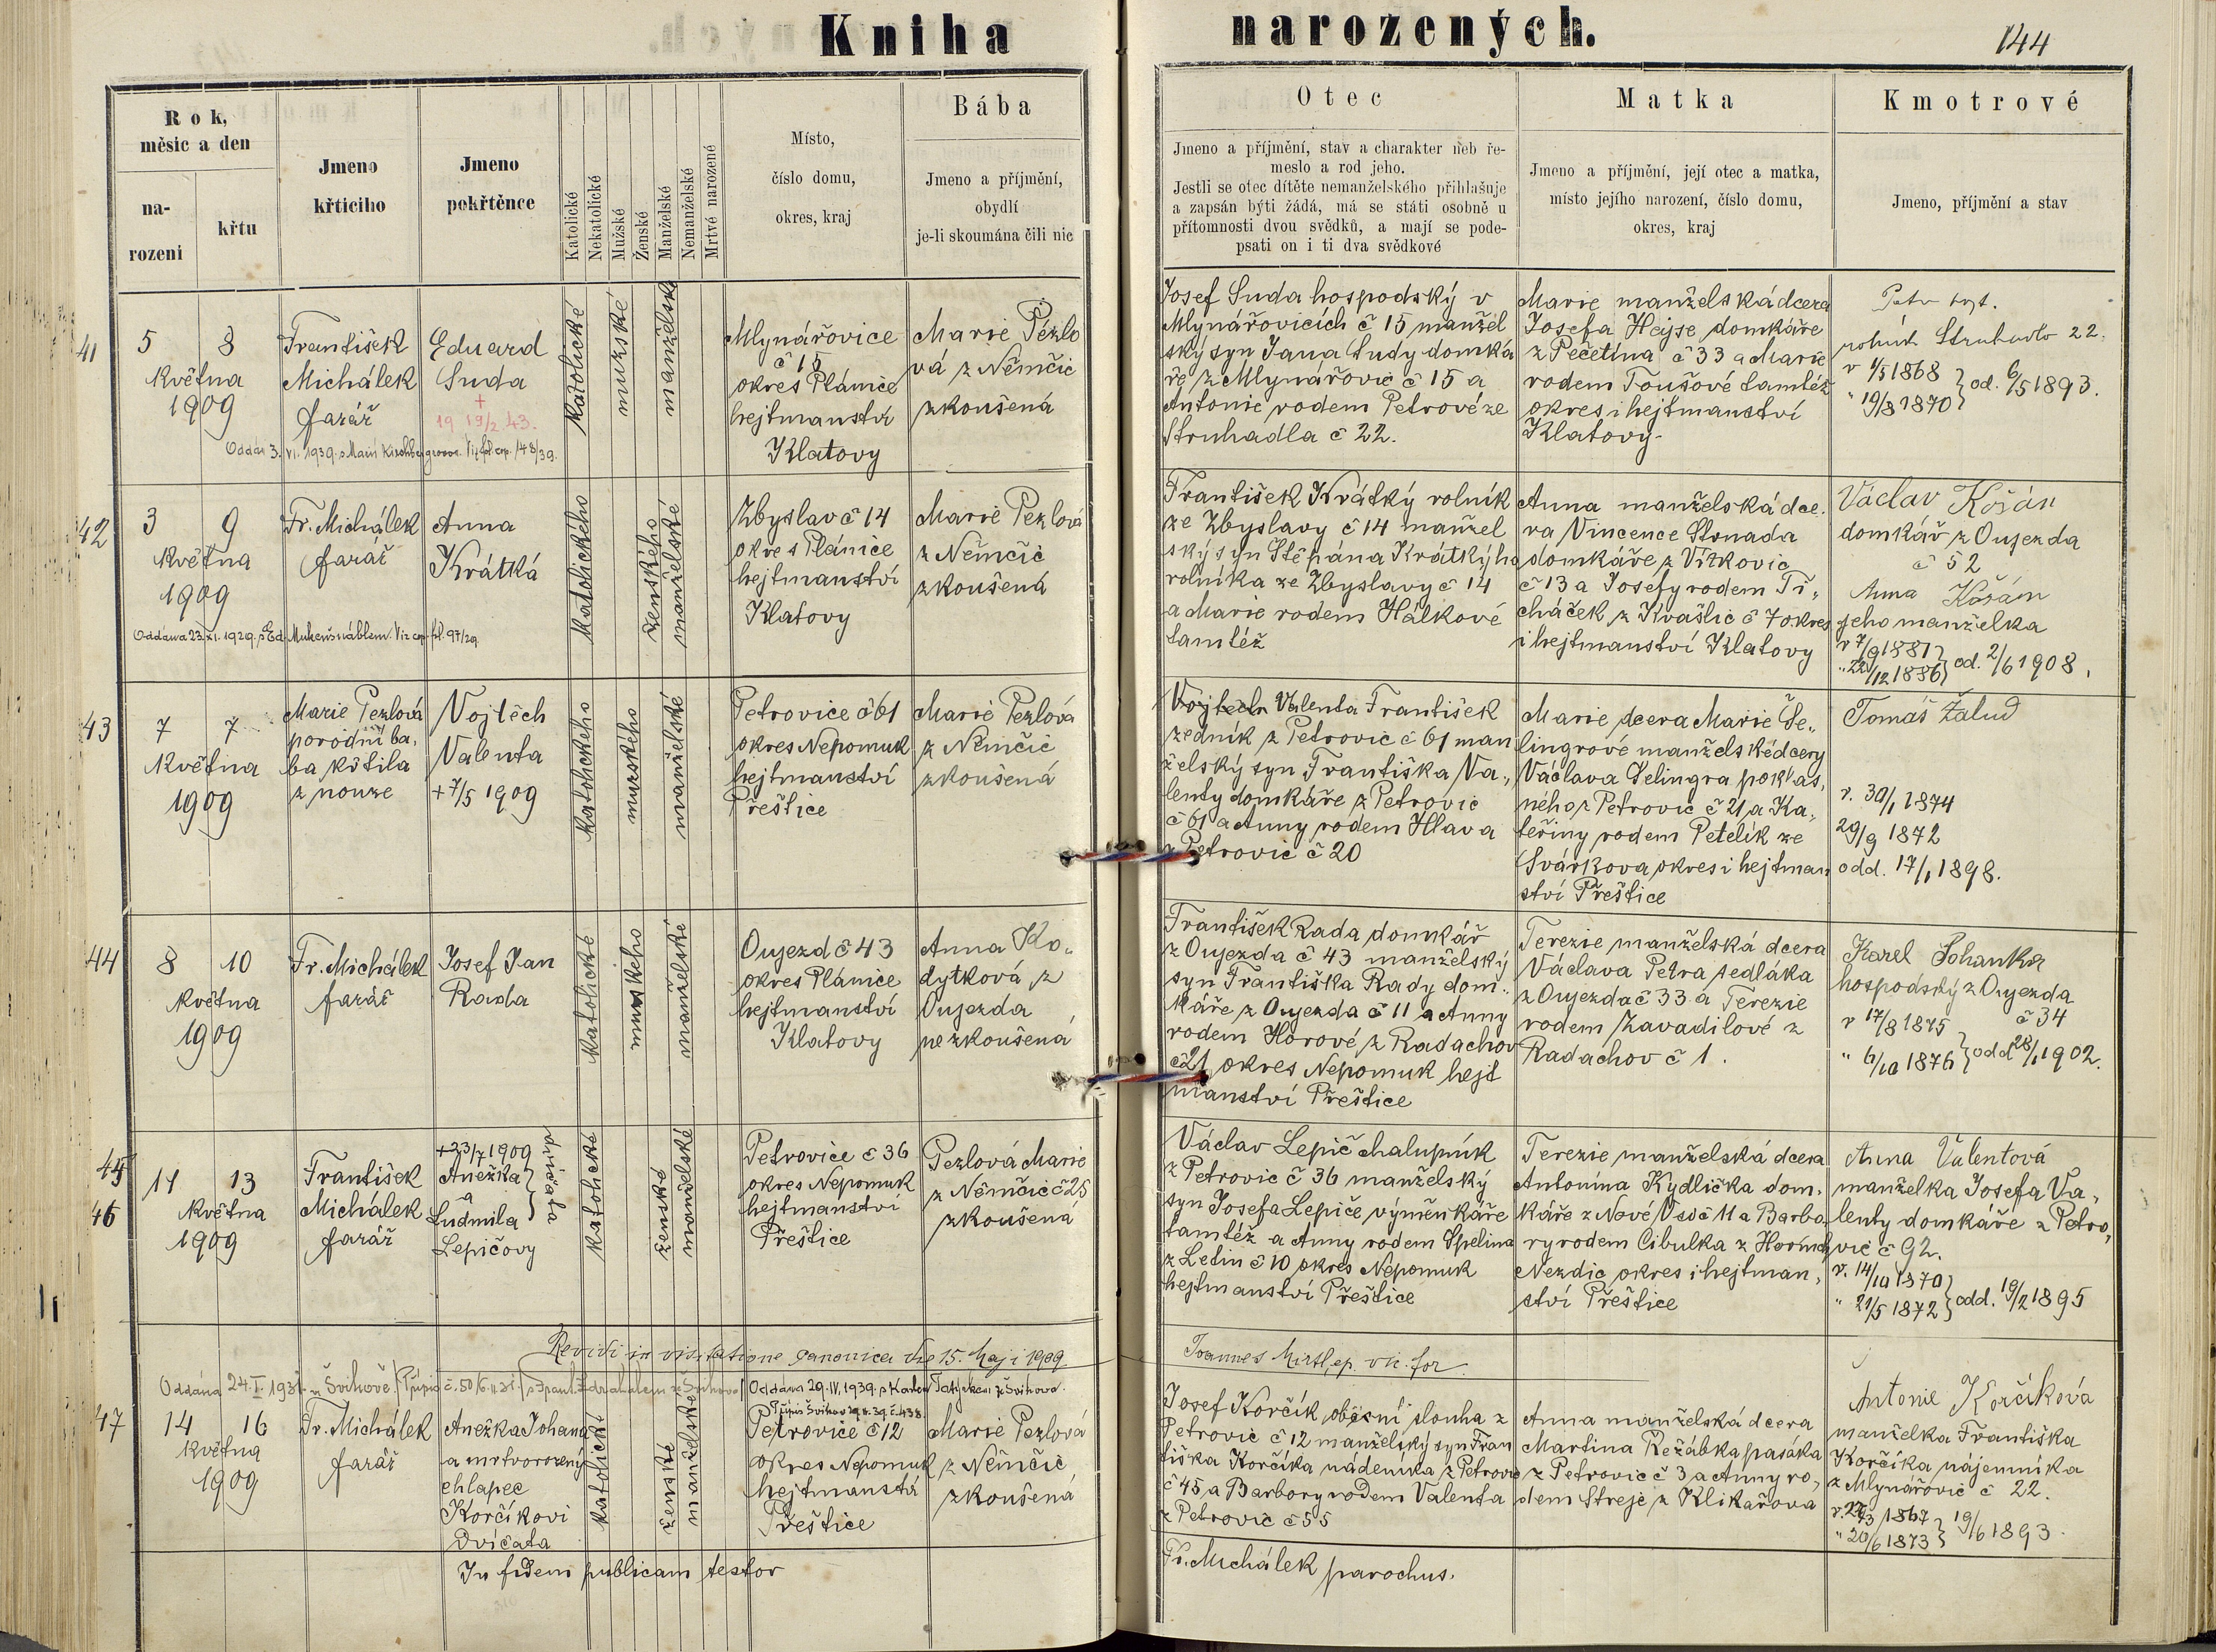 Kniha narozených.
144
Rok,
měsíc a den
na-
rozeni
křtu
Jmeno
křticiho
Jmeno
pokřtěnce
Katolické
Nekatolické
Mužské
Ženské
Manželské
Nemanželské
Mrtvé narozené
Místo,
číslo domu,
okres, kraj
Bába
Jmeno a příjmění,
obydlí
je-li skoumána čili nic
Otec
Jmeno a příjmění, stav a charakter neb ře-
meslo a rod jeho.
Jestli se otec dítěte nemanželského přihlašuje
a zapsán býti žádá, má se státi osobně u
přítomnosti dvou svědků, a mají se pode-
psati on i ti dva svědkové
Matka
Jmeno a příjmění, její otec a matka,
místo jejího narození, číslo domu,
okres, kraj
Kmotrové
Jmeno, příjmění a stav
41
5 8
Května
1909
František
Michálek
farář
Eduard
Suda
+
19 19/2 43.
Oddán 3. VI. 1939. s Marií
katolické
mužské
manželské
Mlynářovice
č 15
okres Plánice
hejtmanství
Klatovy
Marie Pezlo
vá z Němčic
zkoušená
Josef Suda hospodský v
Mlynářovicích č 15 manžel
ský syn Jana Sudy domká
ře z Mlynářovic č 15 a
Antonie rodem Petrové ze
Struhadla č 22.
Marie manželská dcera
Josefa Hejse domkáře
z Pečetína č 33 a Marie
rodem Toušové tamtéž
okres i hejtmanství
Klatovy.
Petr
Struhadlo 22.
v 1/5 1868
" 19/8 1870 } od. 6/5 1893.
42
3 9
Května
1909
Fr. Michálek
farář
Anna
Krátká
Oddána 23. XI. 1929. s Ed. Viz cop. fol. 97/29
katolického
ženského
manželské
Zbyslav č 14
okres Plánice
hejtmanství
Klatovy
Marie Pezlová
z Němčic
zkoušená
František Krátký rolník
ze Zbyslavy č 14 manžel
ský syn Štěpána Krátkýho
rolníka ze Zbyslavy č 14
a Marie rodem Hálkové
tamtéž
Anna manželská dce.
ra Vincence Strnada
domkáře z Vítkovic
č 13 a Josefy rodem Tř„
cháček z Kvašlic č 7 okres
i hejtmanství Klatovy
Václav Košán
domkář z Oujezda
č 52
Anna Košán
jeho manželka
v 7/9 1881
" 22/12 1886 } od. 2/6 1908.
43
7 7
Května
1909
Marie Pezlová
porodní ba„
ba křtila
z nouze
Vojtěch
Valenta
+ 7/5 1909
katolického
mužského
manželské
Petrovice č 61
okres Nepomuk
hejtmanství
Přeštice
Marie Pezlová
z Němčic
zkoušená
Vojtěch Valenta František
zedník z Petrovic č 61 man
želský syn Františka Va„
lenty domkáře z Petrovic
č 61 a Anny rodem Hlava
z Petrovic č 20
Marie dcera Marie Še„
lingrové manželské dcery
Václava Šelingra poklas„
ného z Petrovic č 21 a Ka„
teřiny rodem Petelík ze
Svárkova okres i hejtman
ství Přeštice
Tomáš Žalud
v. 30/1 1874
29/9 1872
odd. 17/1 1898.
44
8 10
Května
1909
Fr. Michálek
farář
Josef Jan
Rada
katolické
mužského
manželské
Oujezd č 43
okres Plánice
hejtmanství
Klatovy
Anna Ko„
dytková z
Oujezda
nezkoušená
František Rada domkář
z Oujezda č 43 manželský
syn Františka Rady dom„
káře z Oujezda č 11 a Anny
rodem Horové z Radachov
č 21 okres Nepomuk hejt
manství Přeštice
Terezie manželská dcera
Václava Petra sedláka
z Oujezda č 33 a Terezie
rodem Zavadilové z
Radachov č 1.
Karel Pohanka
hospodský z Oujezda
č 34
v 17/8 1875
" 6/10 1876 } odd 28/1 1902.
45
46
11 13
Května
1909
František
Michálek
farář
+ 23/7 1909
Anežka
a
Ludmila
Lepičovy
dvíčata
katolické
ženské
manželské
Petrovice č 36
okres Nepomuk
hejtmanství
Přeštice
Pezlová Marie
z Němčic č 25
zkoušená
Václav Lepič chalupník
z Petrovic č 36 manželský
syn Josefa Lepiče výměnkáře
tamtéž a Anny rodem Špelina
z Letin č 10 okres Nepomuk
hejtmanství Přeštice
Terezie manželská dcera
Antonína Kydlička dom„
káře z Nové Vsi č 11 a Barbo
ry rodem Cibulka z Horních
Nezdic okres i hejtman„
ství Přeštice
Anna Valentová
manželka Josefa Va„
lenty domkáře z Petro„
vic č 92.
v. 14/10 1870
" 21/5 1872 } odd. 19/2 1895
Revidi in visitatione canonica die 15. Maji 1909
Joannes Mirtl, ep. vic. for
Oddána 24. I. 1931 u Švihově
Oddána 29. IV. 1939. s Karlem ze Švihova.
47
14 16
Května
1909
Fr. Michálek
farář
Anežka Johana
a mrtvorozený
chlapec
Korčíkovi
dvíčata
katolické
ženské
manželské
Petrovice č 12
okres Nepomuk
hejtmanství
Přeštice
Marie Pezlová
z Němčic
zkoušená
Josef Korčík obecní slouha z
Petrovic č 12 manželský syn Fran
tiška Korčíka nádeníka z Petrovic
č 45 a Barbory rodem Valenta
z Petrovic č 55
Anna manželská dcera
Martina Režábka pasáka
z Petrovic č 3 a Anny ro„
dem Streje z Klikařova
Antonie Korčíková
manželka Františka
Korčíka nájemníka
z Mlynářovic č 22.
1867
" 20/6 1873 } 19/6 1893.
In fidem publicam testor
Fr. Michálek parochus.